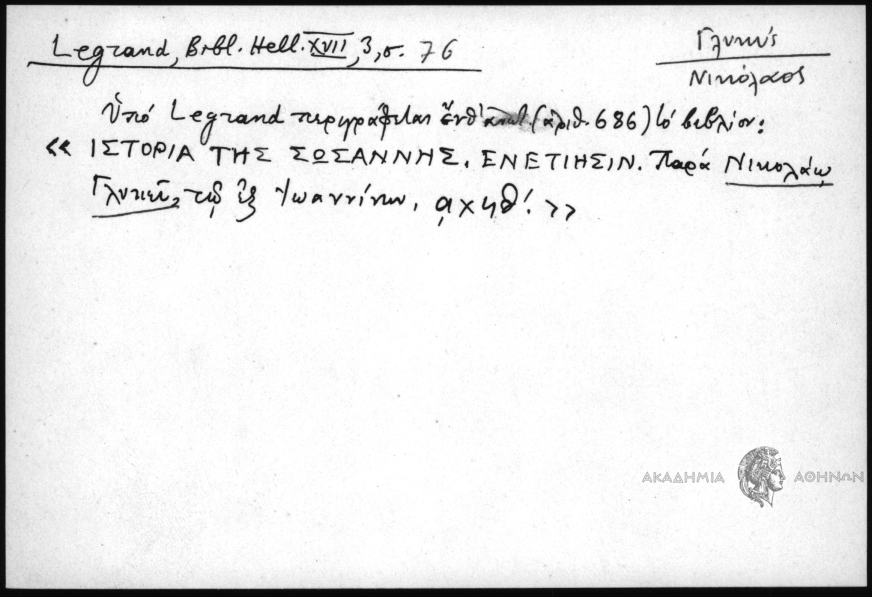 Legrand, Bibl. Hell. XVII, 3, σ. 76
Γλυκύς
Νικόλαος
Ὑπό Legrand περιγράφεται ἐνθ' ἀνωτ. (ἀριθ. 686) τό βιβλίον:
« ΙΣΤΟΡΙΑ ΤΗΣ ΣΩΣΑΝΝΗΣ. ΕΝΕΤΙΗΣΙΝ. Παρά Νικολάῳ
Γλυκεῖ, τῷ ἐξ Ἰωαννίνων, ͵αχηθ'. »
ΑΚΑΔΗΜΙΑ ΑΘΗΝΩΝ